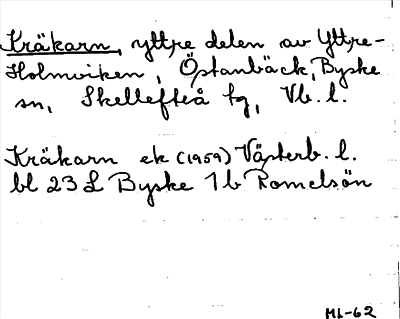 Kräkarn, yttre delen av Yttre-
Holmviken, Östanbäck, Byske
sn, Skellefteå tg, Vb. l.
Kräkarn ek (1959) Västerb. l.
bl 23 L Byske 1b Romelsön
ML-62